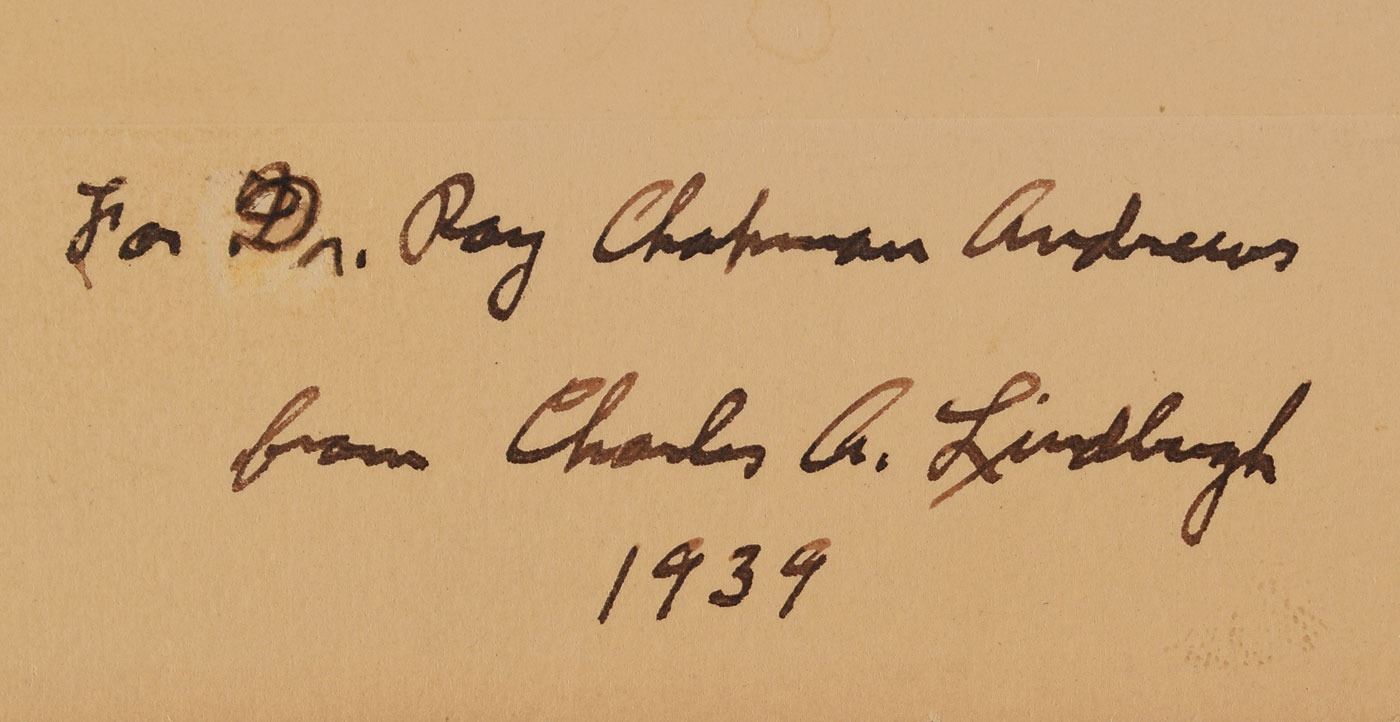 For Dr. Roy Chapman Andrews
from Charles A. Lindbergh
1939